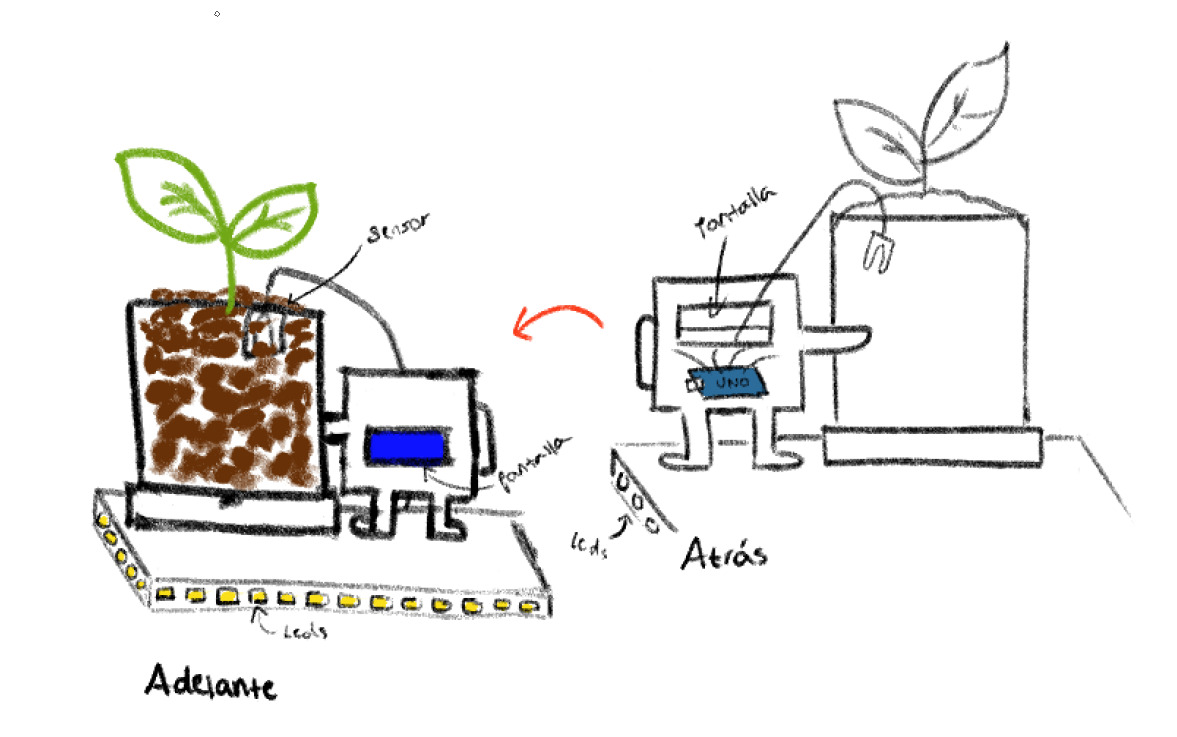 sensor
pantalla
Leds
Adelante
Pantalla
UNO
Leds
Atrás